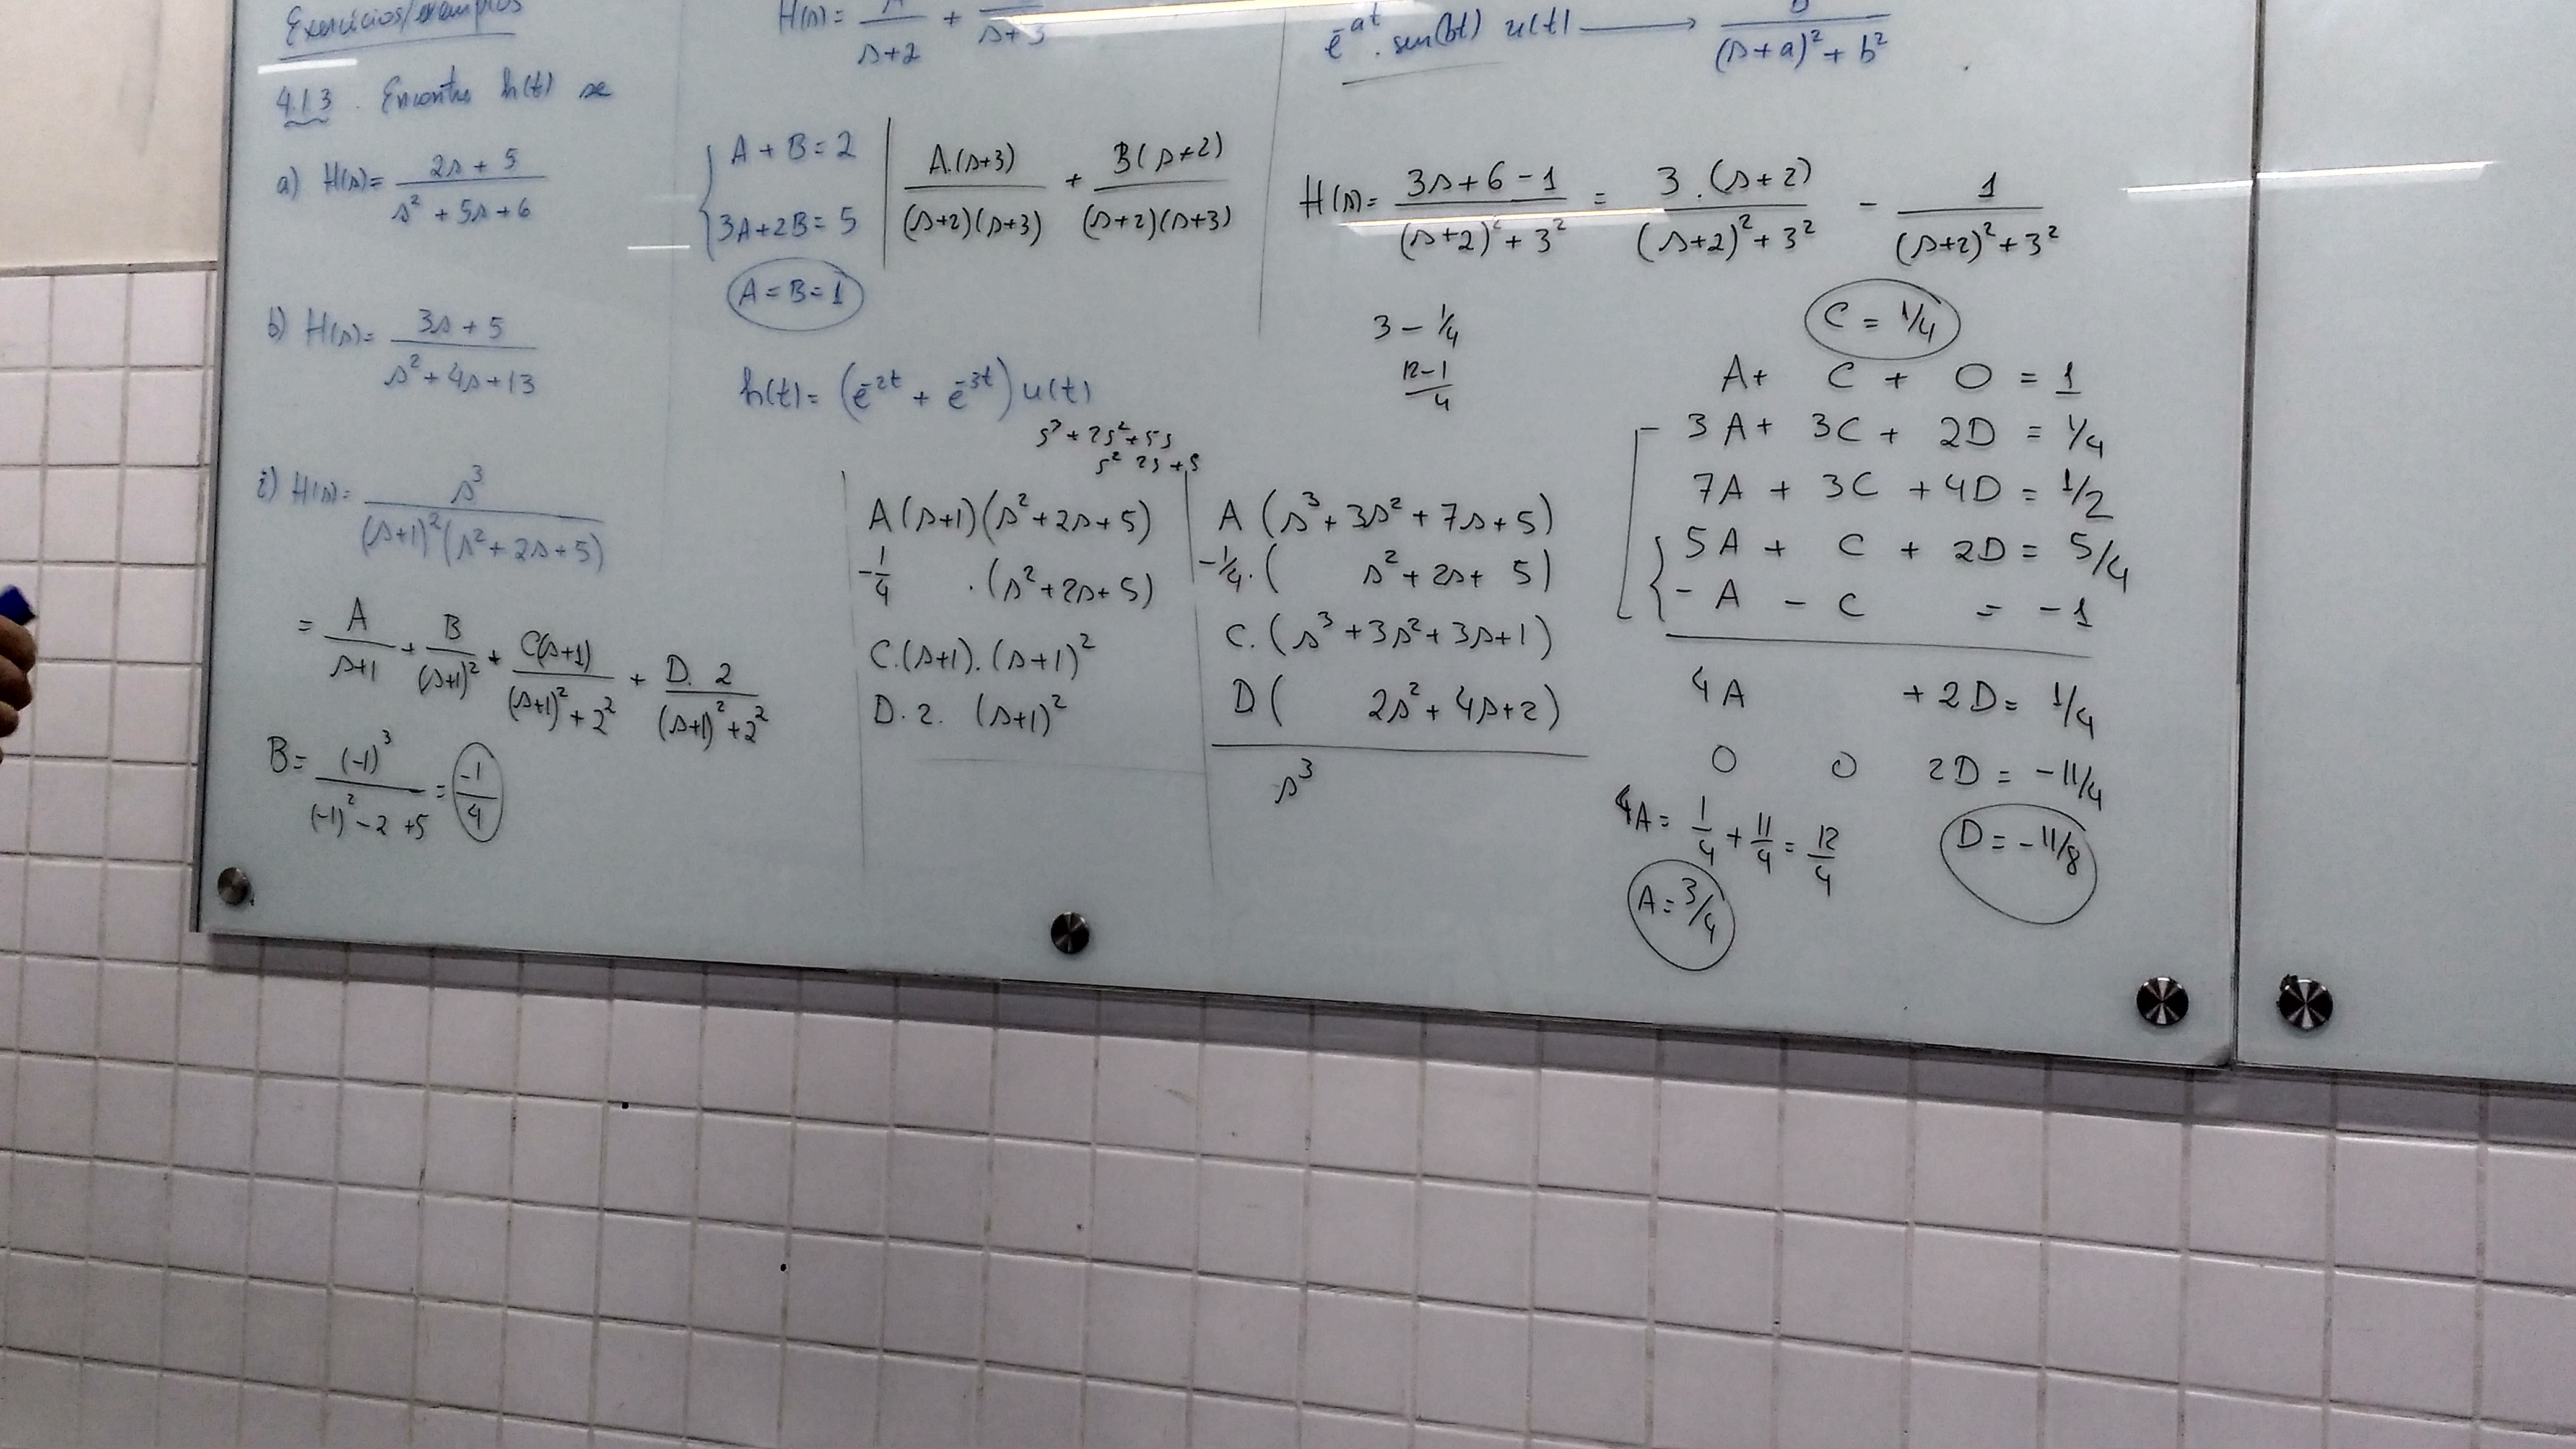 Exercícios/exemplos
4.1.3. Encontre h(t) se
a) H(s) = (2s + 5) / (s² + 5s + 6)
b) H(s) = (3s + 5) / (s² + 4s + 13)
i) H(s) = s³ / ((s+1)² (s² + 2s + 5))
= A/(s+1) + B/(s+1)² + C(s+1)/((s+1)² + 2²) + D. 2/((s+1)² + 2²)
B = (-1)³ / ((-1)² - 2 + 5) = -1/4
H(s) = A/(s+2) + /(s+3)
A + B = 2
3A + 2B = 5
A = B = 1
A.(s+3)/((s+2)(s+3)) + B(s+2)/((s+2)(s+3))
h(t) = (e^-2t + e^-3t) u(t)
s³ + 2s² + 5s
s² 2s + 5
A(s+1)(s² + 2s + 5)
-1/4 .(s² + 2s + 5)
C.(s+1).(s+1)²
D.2. (s+1)²
A (s³ + 3s² + 7s + 5)
-1/4.( s² + 2s + 5)
C.(s³ + 3s² + 3s + 1)
D( 2s² + 4s + 2)
s³
e^-at . sen(bt) u(t) → b/((s+a)² + b²)
H(s) = (3s + 6 - 1)/((s+2)² + 3²) = 3.(s+2)/((s+2)² + 3²) - 1/((s+2)² + 3²)
3 - 1/4
(12-1)/4
C = 1/4
A + C + 0 = 1
- 3A + 3C + 2D = 1/4
7A + 3C + 4D = 1/2
5A + C + 2D = 5/4
- A - C = -1
4A + 2D = 1/4
0 0 2D = -11/4
4A = 1/4 + 11/4 = 12/4
D = -11/8
A = 3/4